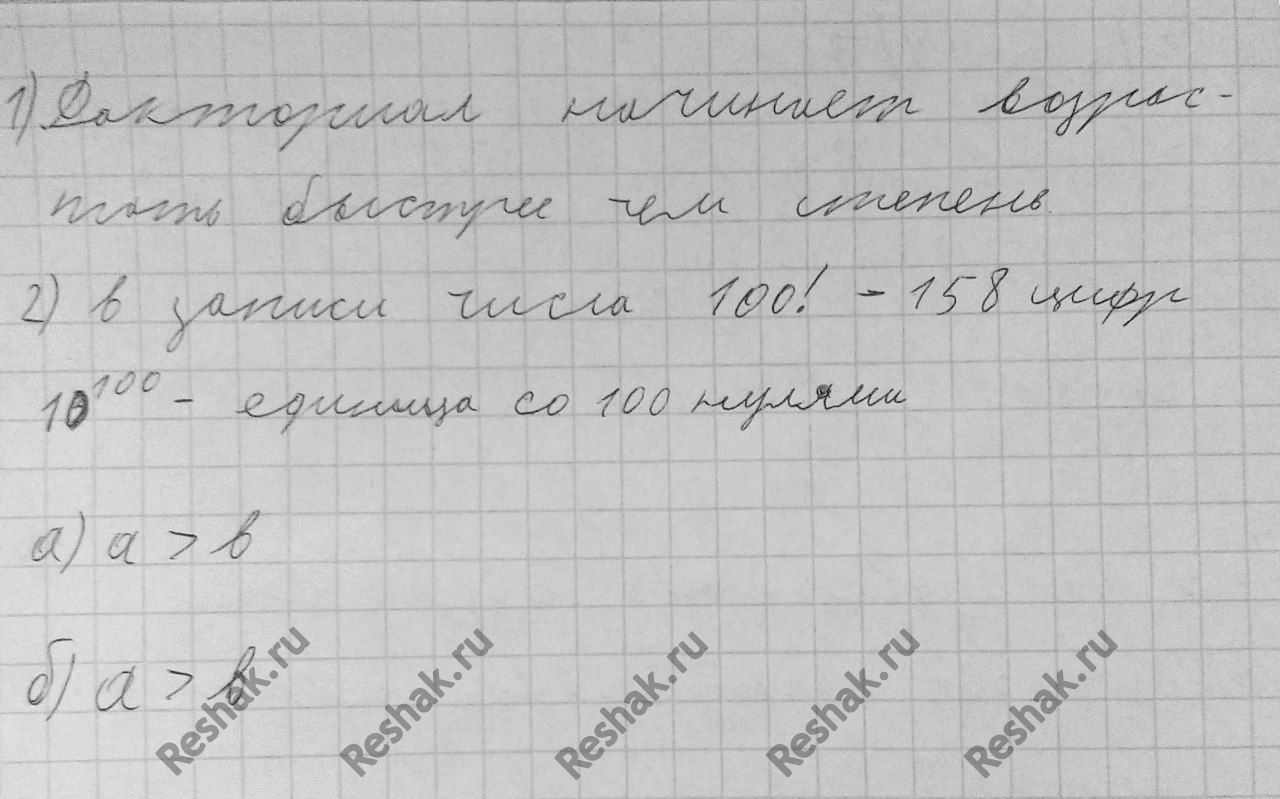 1) Факториал начинает возрас-
тать быстрее чем степень
2) в записи числа 100! - 158 цифр
10^100 - единица со 100 нулями
а) a > b
б) a > b
Reshak.ru Reshak.ru Reshak.ru Reshak.ru Reshak.ru